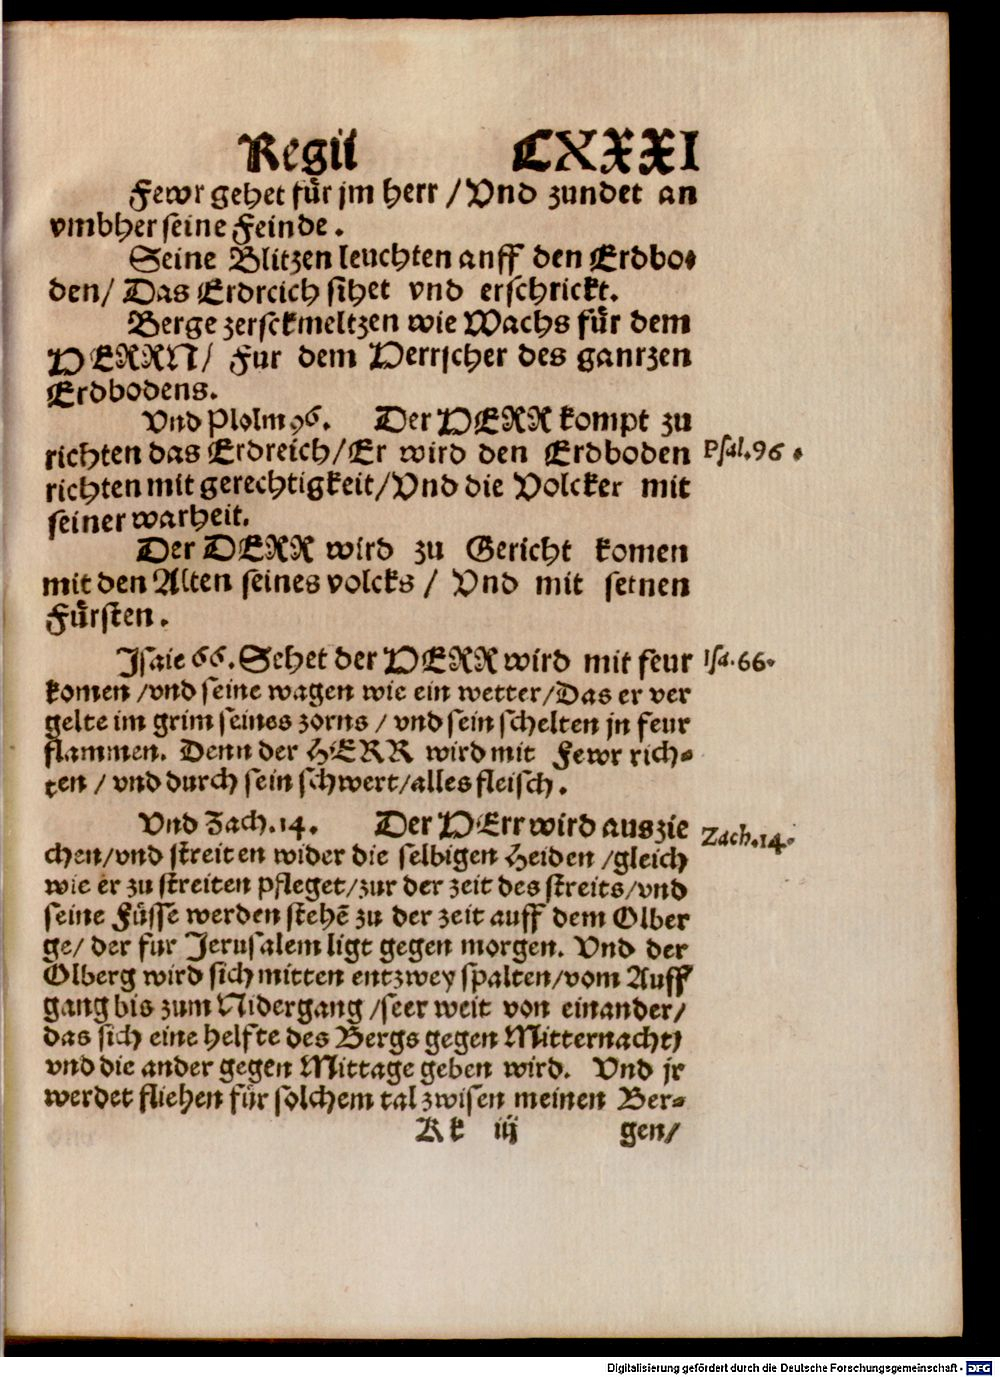 Regii CXXXI
Fewr gehet für jm herr / Vnd zundet an
vmbher seine Feinde.
Seine Blitzen leuchten anff den Erdbo⸗
den / Das Erdreich sihet vnd erschrickt.
Berge zersckmeltzen wie Wachs für dem
HERRN / Fur dem Herrscher des ganrzen
Erdbodens.
Vnd Psolm 96. Der HERR kompt zu
richten das Erdreich / Er wird den Erdboden
Psal. 96.
richten mit gerechtigkeit / Vnd die Volcker mit
seiner warheit.
Der DERR wird zu Gericht komen
mit den Alten seines volcks / Vnd mit seinen
Fürsten.
Isaie 66. Sehet der HERR wird mit feur
Isa. 66.
komen / vnd seine wagen wie ein wetter / Das er ver
gelte im grim seines zorns / vnd sein schelten jn feur
flammen. Denn der HERR wird mit Fewr rich⸗
ten / vnd durch sein schwert / alles fleisch.
Vnd Zach. 14. Der HErr wird auszie
Zach. 14.
chen / vnd streiten wider die selbigen Heiden / gleich
wie er zu streiten pfleget / zur der zeit des streits / vnd
seine Füsse werden stehē zu der zeit auff dem Olber
ge / der fur Jerusalem ligt gegen morgen. Vnd der
Olberg wird sich mitten entzwey spalten / vom Auff
gang bis zum Nidergang / seer weit von einander /
das sich eine helfte des Bergs gegen Mitternacht /
vnd die ander gegen Mittage geben wird. Vnd jr
werdet fliehen für solchem tal zwisen meinen Ber⸗
Kk iij gen /
Digitalisierung gefördert durch die Deutsche Forschungsgemeinschaft - DFG